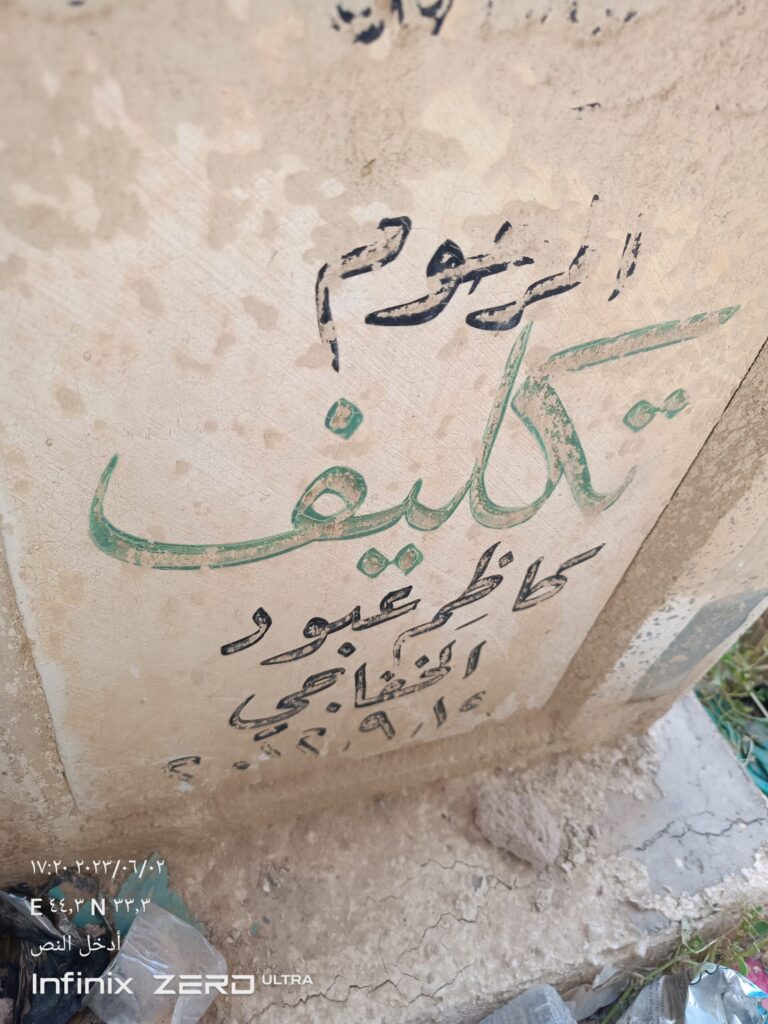 المرحوم
تكليف
كاظم عبود
الخفاجي
١٧:٢٠ ٢٠٢٣/٠٦/٠٢
E ٤٤,٣ N ٣٣,٣
أدخل النص
Infinix ZERO ULTRA